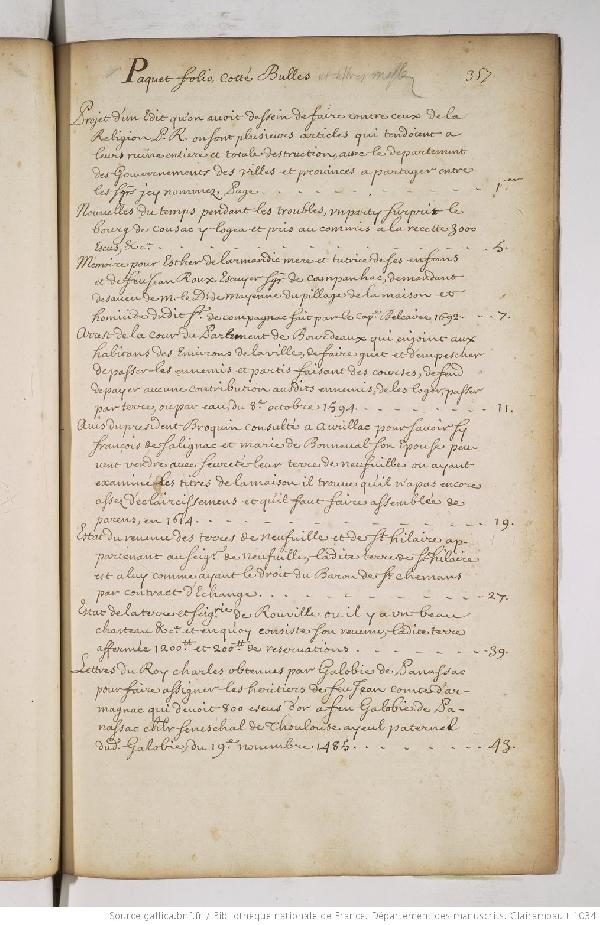 Paquet folio, cotté Bulles et lettres 357
Projet d'un Edit qu'on avoit dessein de faire contre ceux de la
Religion P. R. on sont plusieurs articles qui tendoient a
leurs ruine entiere et totale destruction, avec le departement
des Gouvernements des villes et provinces a partager entre
les sgrs. y nommez, Page 1.er
Nouvelles du temps pendant les troubles, surprit le
bourg de Cousac y logea et pris au commis a la recette 3000
Escus, &c. 5.
Memoire pour Esther de Larmandie mere et tutrice de ses enfans
et de feu Jean Roux Escuyer sgr. de Campanhac, demandant
desaveu de M. le D. de Mayenne du pillage de la maison et
homicide dudit sr. de Compagnac fait par le Cap.e Belcaire, 1692. 7.
Arrest de la Cour du Parlement de Bourdeaux qui enjoint aux
habitans des Environs de la ville, de faire guet et d'empescher
de passer les ennemis et partis faisant des courses, defend
de payer aucune contribution ausdits ennemis, de les loger, passer
par terre, ou par eau, du 8.e octobre 1594. 11.
Avis du president Broquin consulté a Avrillac pour savoir sy
françois de Salignac et marie de Bonnaval son epouse peu-
vent vendre avec seureté leur terre de neufuille ou ayant
examiné les titres de la maison il trouve qu'il n'a pas encore
assez d'éclaircissemens et qu'il faut faire assemblée de
parens, en 1614. 19.
Estat du revenu des terres de Neufuille et de St. hilaire ap-
partenant au seigr. de Neufuille, ladite terre de St. hilaire
est a luy comme ayant le droit du Baron de St. chemans
par contract d'Echange. 27.
Estat de la terre et seigrie. de Rouville ou il y a un beau
chasteau &c. et en quoy consiste son revenu, ladite terre
affermée 1200.tt et 200.tt de reservations. 39.
Lettres du Roy charles obtenues par Galobie de Panassac
pour faire assigner les heritiers de feu Jean comte d'ar-
magnac qui devoit 800 escus d'or a feu Galobie de Pa-
nassac chlr. seneschal de Thoulouse ayeul paternel
dud. Galobie, du 19.e novembre 1485. 43.
Source gallica.bnf.fr / Bibliothèque nationale de France. Département des manuscrits. Clairambault 1034